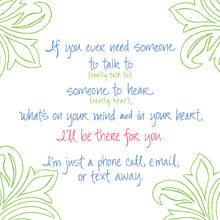 If you ever need someone
to talk to
(really talk to),
someone to hear
(really hear),
what's on your mind and in your heart,
I'll be there for you.
I'm just a phone call, email,
or text away.